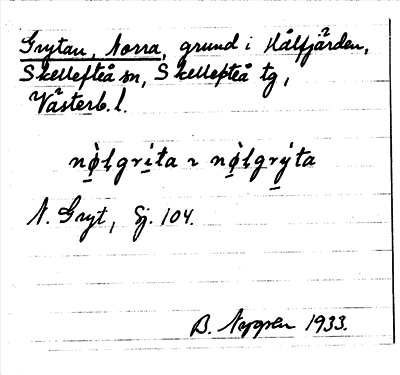 Grytan, Norra, grund i Hålfjärden,
Skellefteå sn, Skellefteå tg,
Västerb. l.
nø̀lgrı̀ta ~ nø̀lgrỳta
N. Gryt, Sj. 104.
B. 1933.